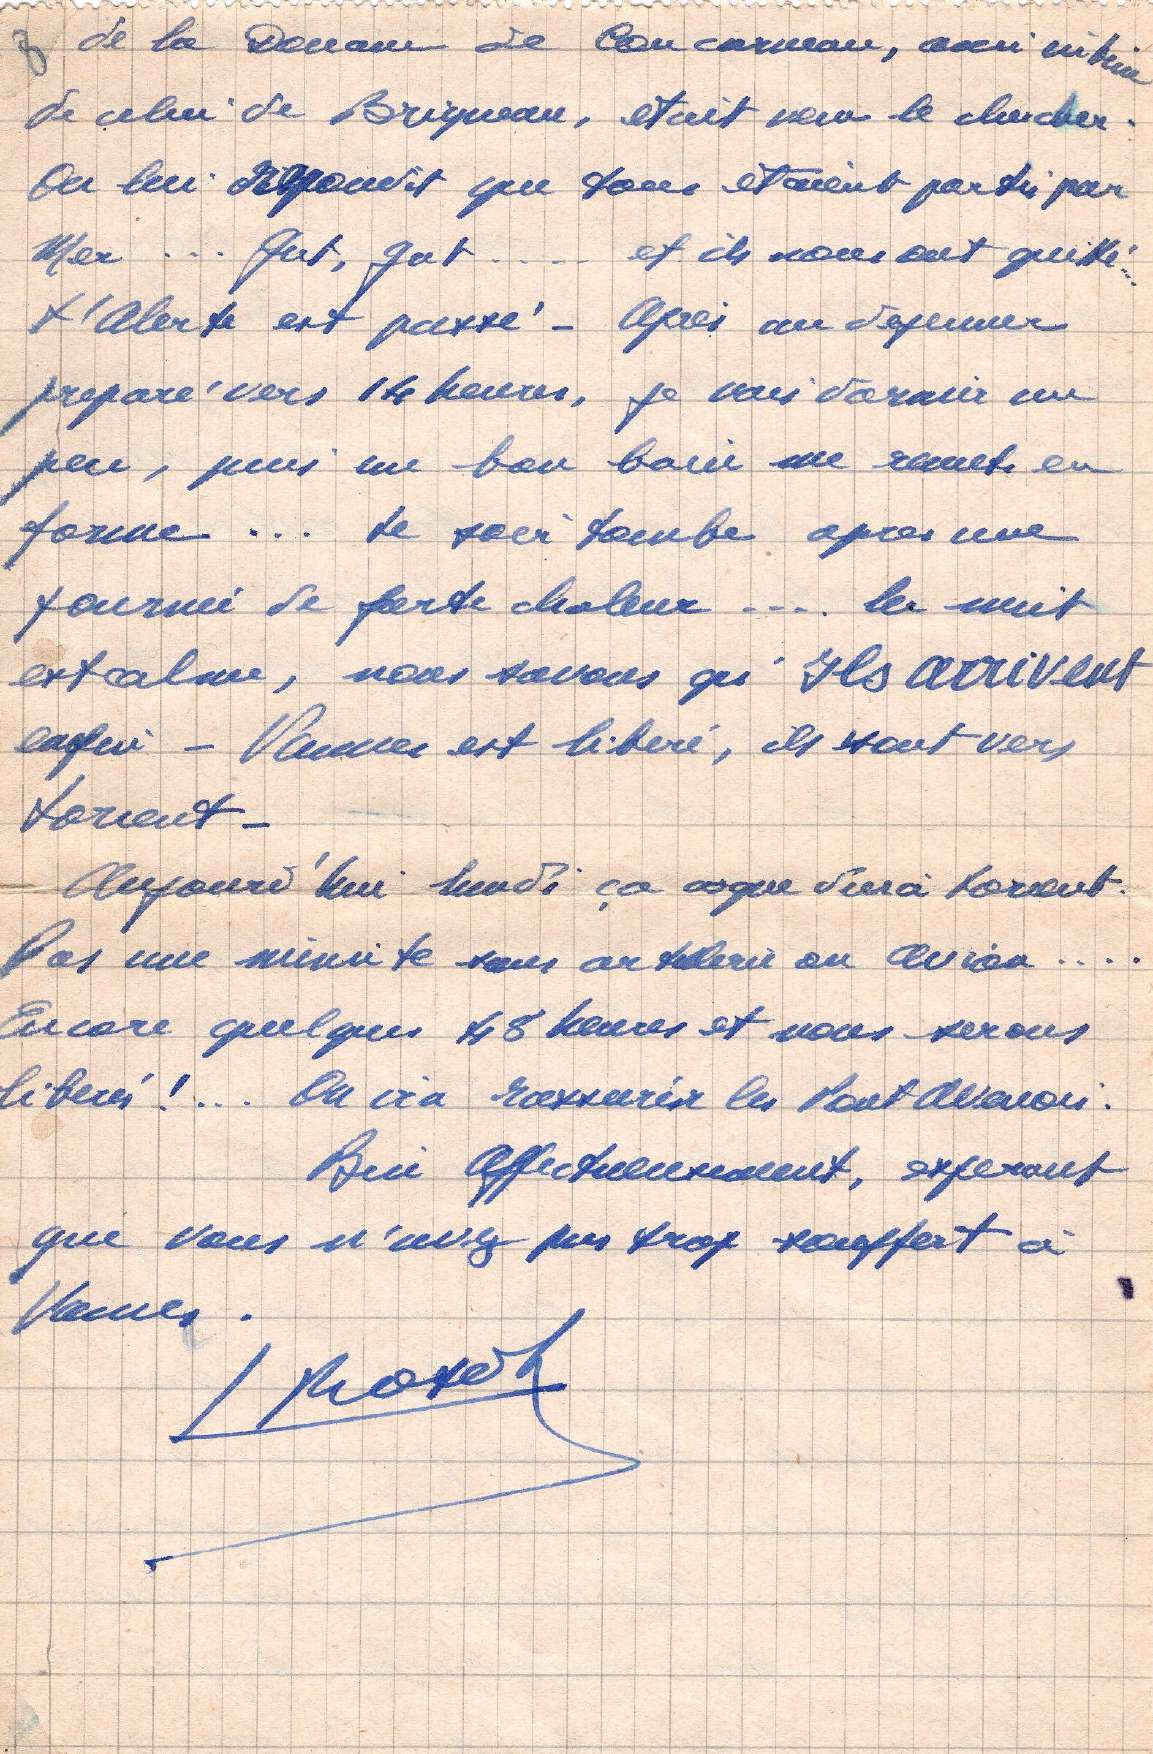 8 de la Douane de Concarneau, ami intime
de celui de Brigneau, était venu le chercher.
On lui répondit que tous étaient partis par
Mer ... Gut, gut .... et ils nous ont quitté...
L'Alerte est passé - Après un dejeuner
preparé vers 14 heures, je vais dormir un
peu, puis un bon bain me remet en
forme ... Le soir tombe apres une
journée de forte chaleur .... la nuit
est calme, nous savons qu'Ils arrivent
enfin - Vannes est libéré, ils sont vers
Lorient -
Aujourd'hui lundi ça cogne dur à Lorient.
Pas une minute sans artillerie ou Avion ....
Encore quelques 48 heures et nous serons
liberés ! ... On ira rassurer les Pont Avenois.
Bien Affectueusement, esperant
que vous n'avez pas trop souffert à
Vannes.